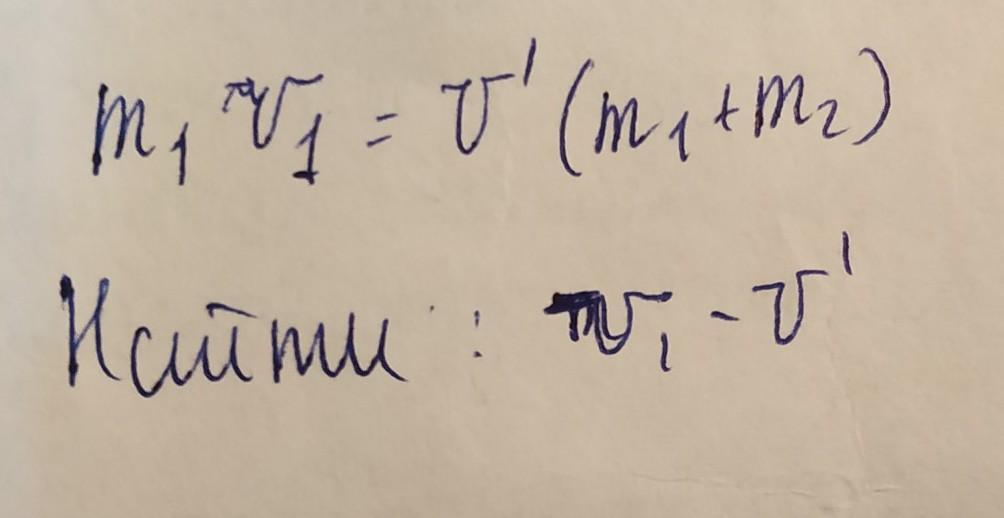 m₁ v₁ = v' (m₁ + m₂)
Найти : v₁ - v'